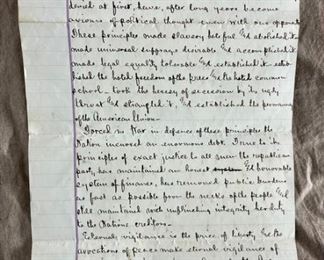 at first, have, after long years become
axioms of political thought even with our opponents
These principles made slavery hateful & abolished it
made universal suffrage desirable & accomplished it
made legal equality tolerable & established it
the hated freedom of the & the hated common
school - took the heresy of secession by its ugly
throat & strangled it, & established the permanency
of the American Union -
Forced in War in defence of these principles the
Nation incurred an enormous debt. True to its
principles of exact justice to all men the republican
party has maintained an honest & honorable
system of finance, has removed public burdens
as fast as possible from the necks of the people &
still maintained with unflinching integrity her duty
to the Nations creditors -
Eternal vigilance is the price of liberty & the
avocations of peace make vigilance of